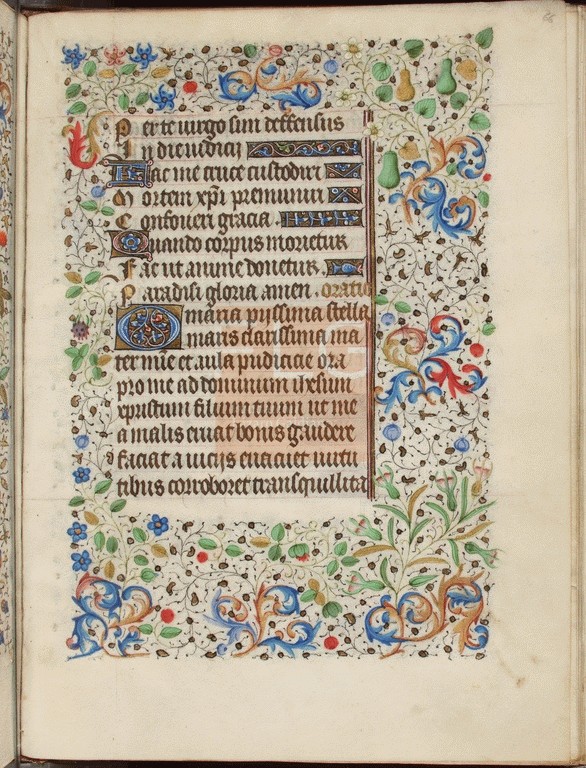 Per te virgo sim deffensus
In die iudicij
Fac me cruce custodiri
Mortem xpi premuniri
Confoueri gracia
Quando corpus morietur
Fac ut anime donetur
Paradisi gloria amen. oratio
O maria pijssima stella
maris clarissima ma
ter mie et aula pudicicie ora
pro me ad dominum ihesum
xpristum filium tuum ut me
a malis eruat bonis gaudere
faciat a vicijs euacuet virtu
tibus corroboret transquillita